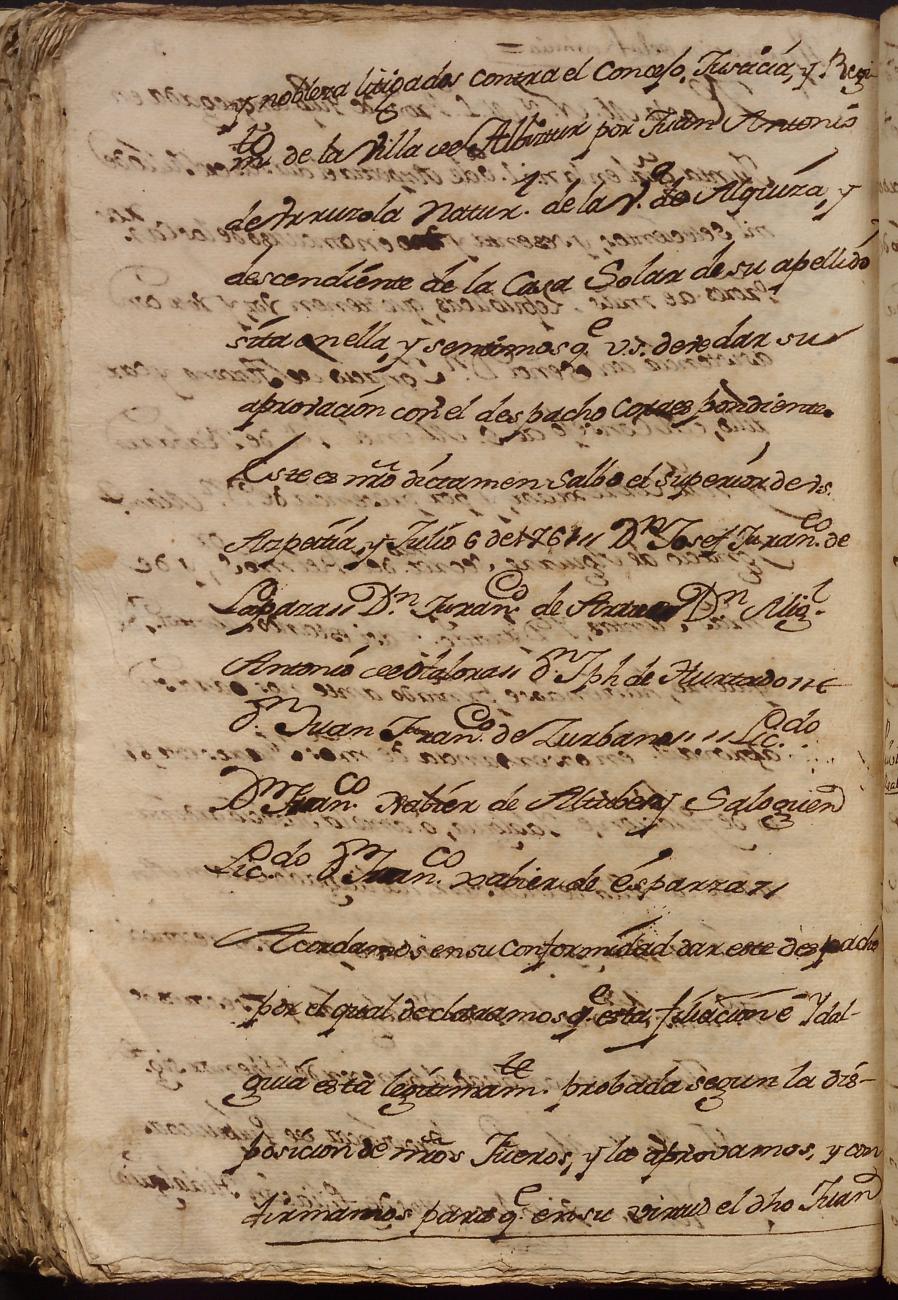 y nobleza litigados contra el Concejo, Justicia, y Regi-
m.to de la Villa de Albiztur por Juan Antonio
de Yrruzola Natur.l de la V.a de Alquiza, y
descendiente de la Casa Solar de su apellido
sita en ella, y sentimos q.e v.s. debe dar su
aprovacion con el despacho correspondiente.
Este es nro dictamen salbo el superior de v.s.
Azpeitia, y Julio 6 de 1761 // D.n Josef Fran.co de
Lapaza // D.n Fran.co de D.n Mig.l
Antonio de Olalora // d.n Jph de Hurtado //
d.n Juan Fran.co de Zurbano // Lic.do
D.n Fran.co Xabier de Altube y
Lic.do d.n Juan.co Xabier de Esparza //
Acordamos en su conformidad dar este despacho
por el qual declaramos q.e esta filiacion é Ydal-
guia está legitimam.te probada segun la dis-
posicion de nros Fueros, y la aprovamos, y con
firmamos para q.e en su virtud el dho Juan